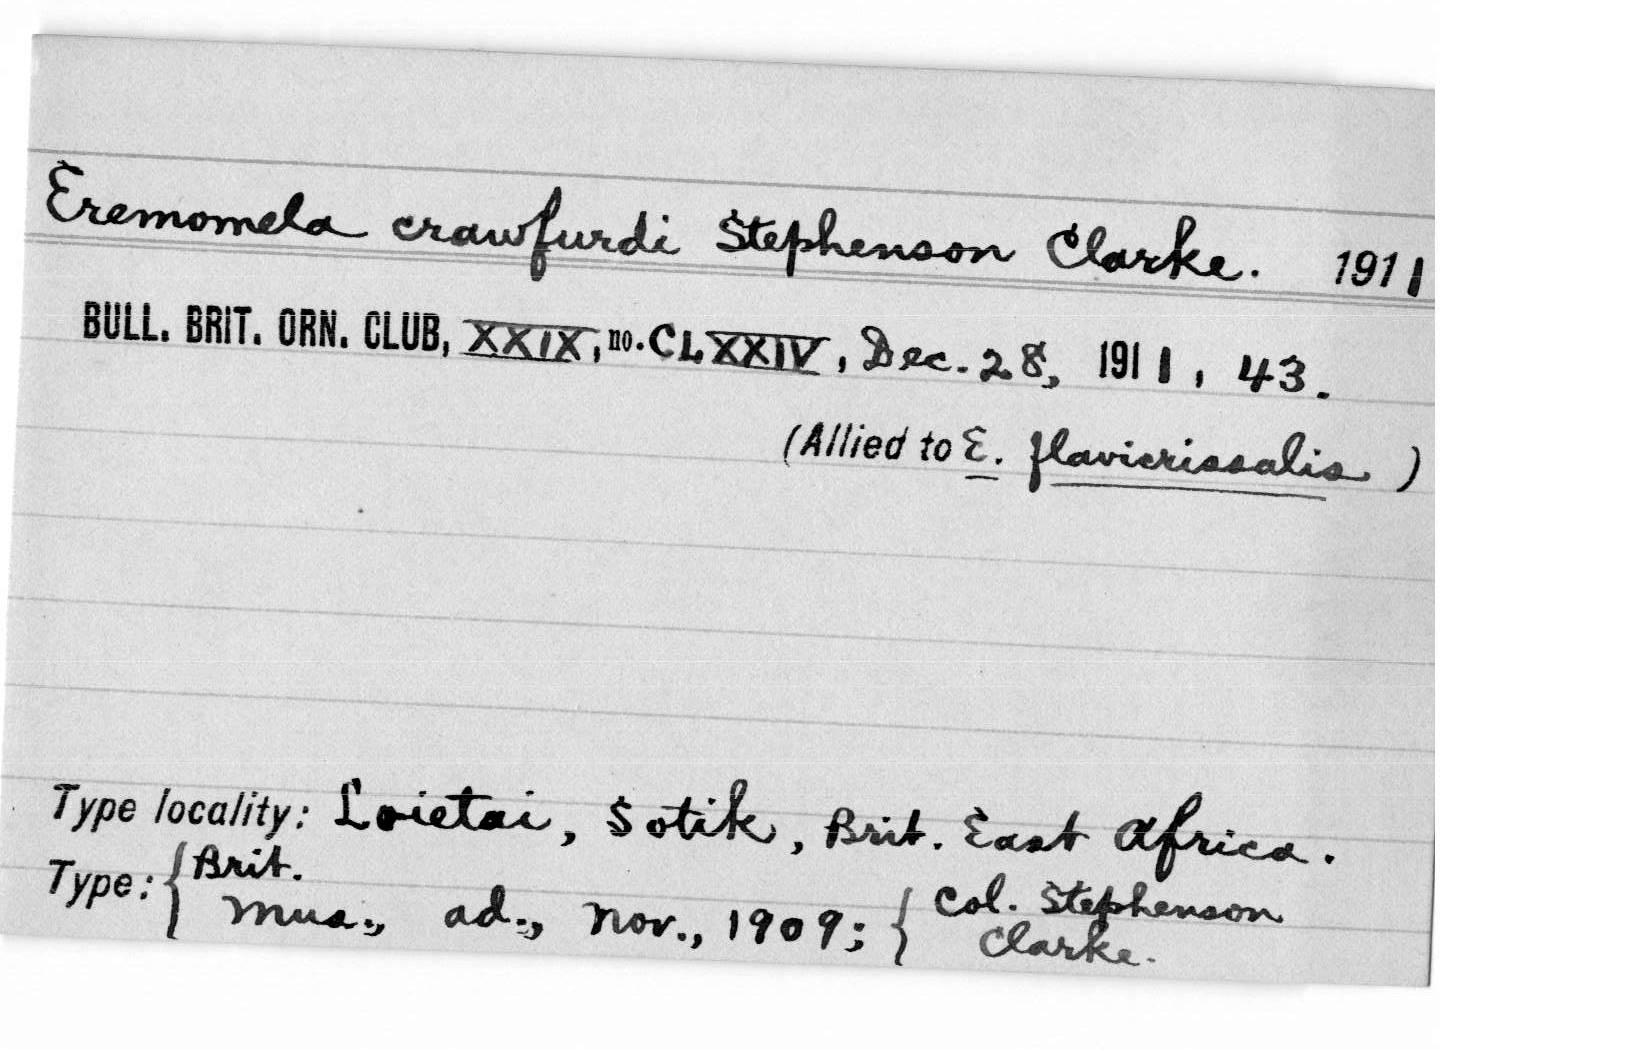 Eremomela crawfurdi Stephenson Clarke. 1911
BULL. BRIT. ORN. CLUB, XXIX, no. CLXXIV, Dec. 28, 1911, 43.
(Allied to E. flavicrissalis )
Type locality: Loietai, Sotik, Brit. East Africa.
Type: { Brit.
Mus., ad., Nov., 1909; { Col. Stephenson
Clarke.